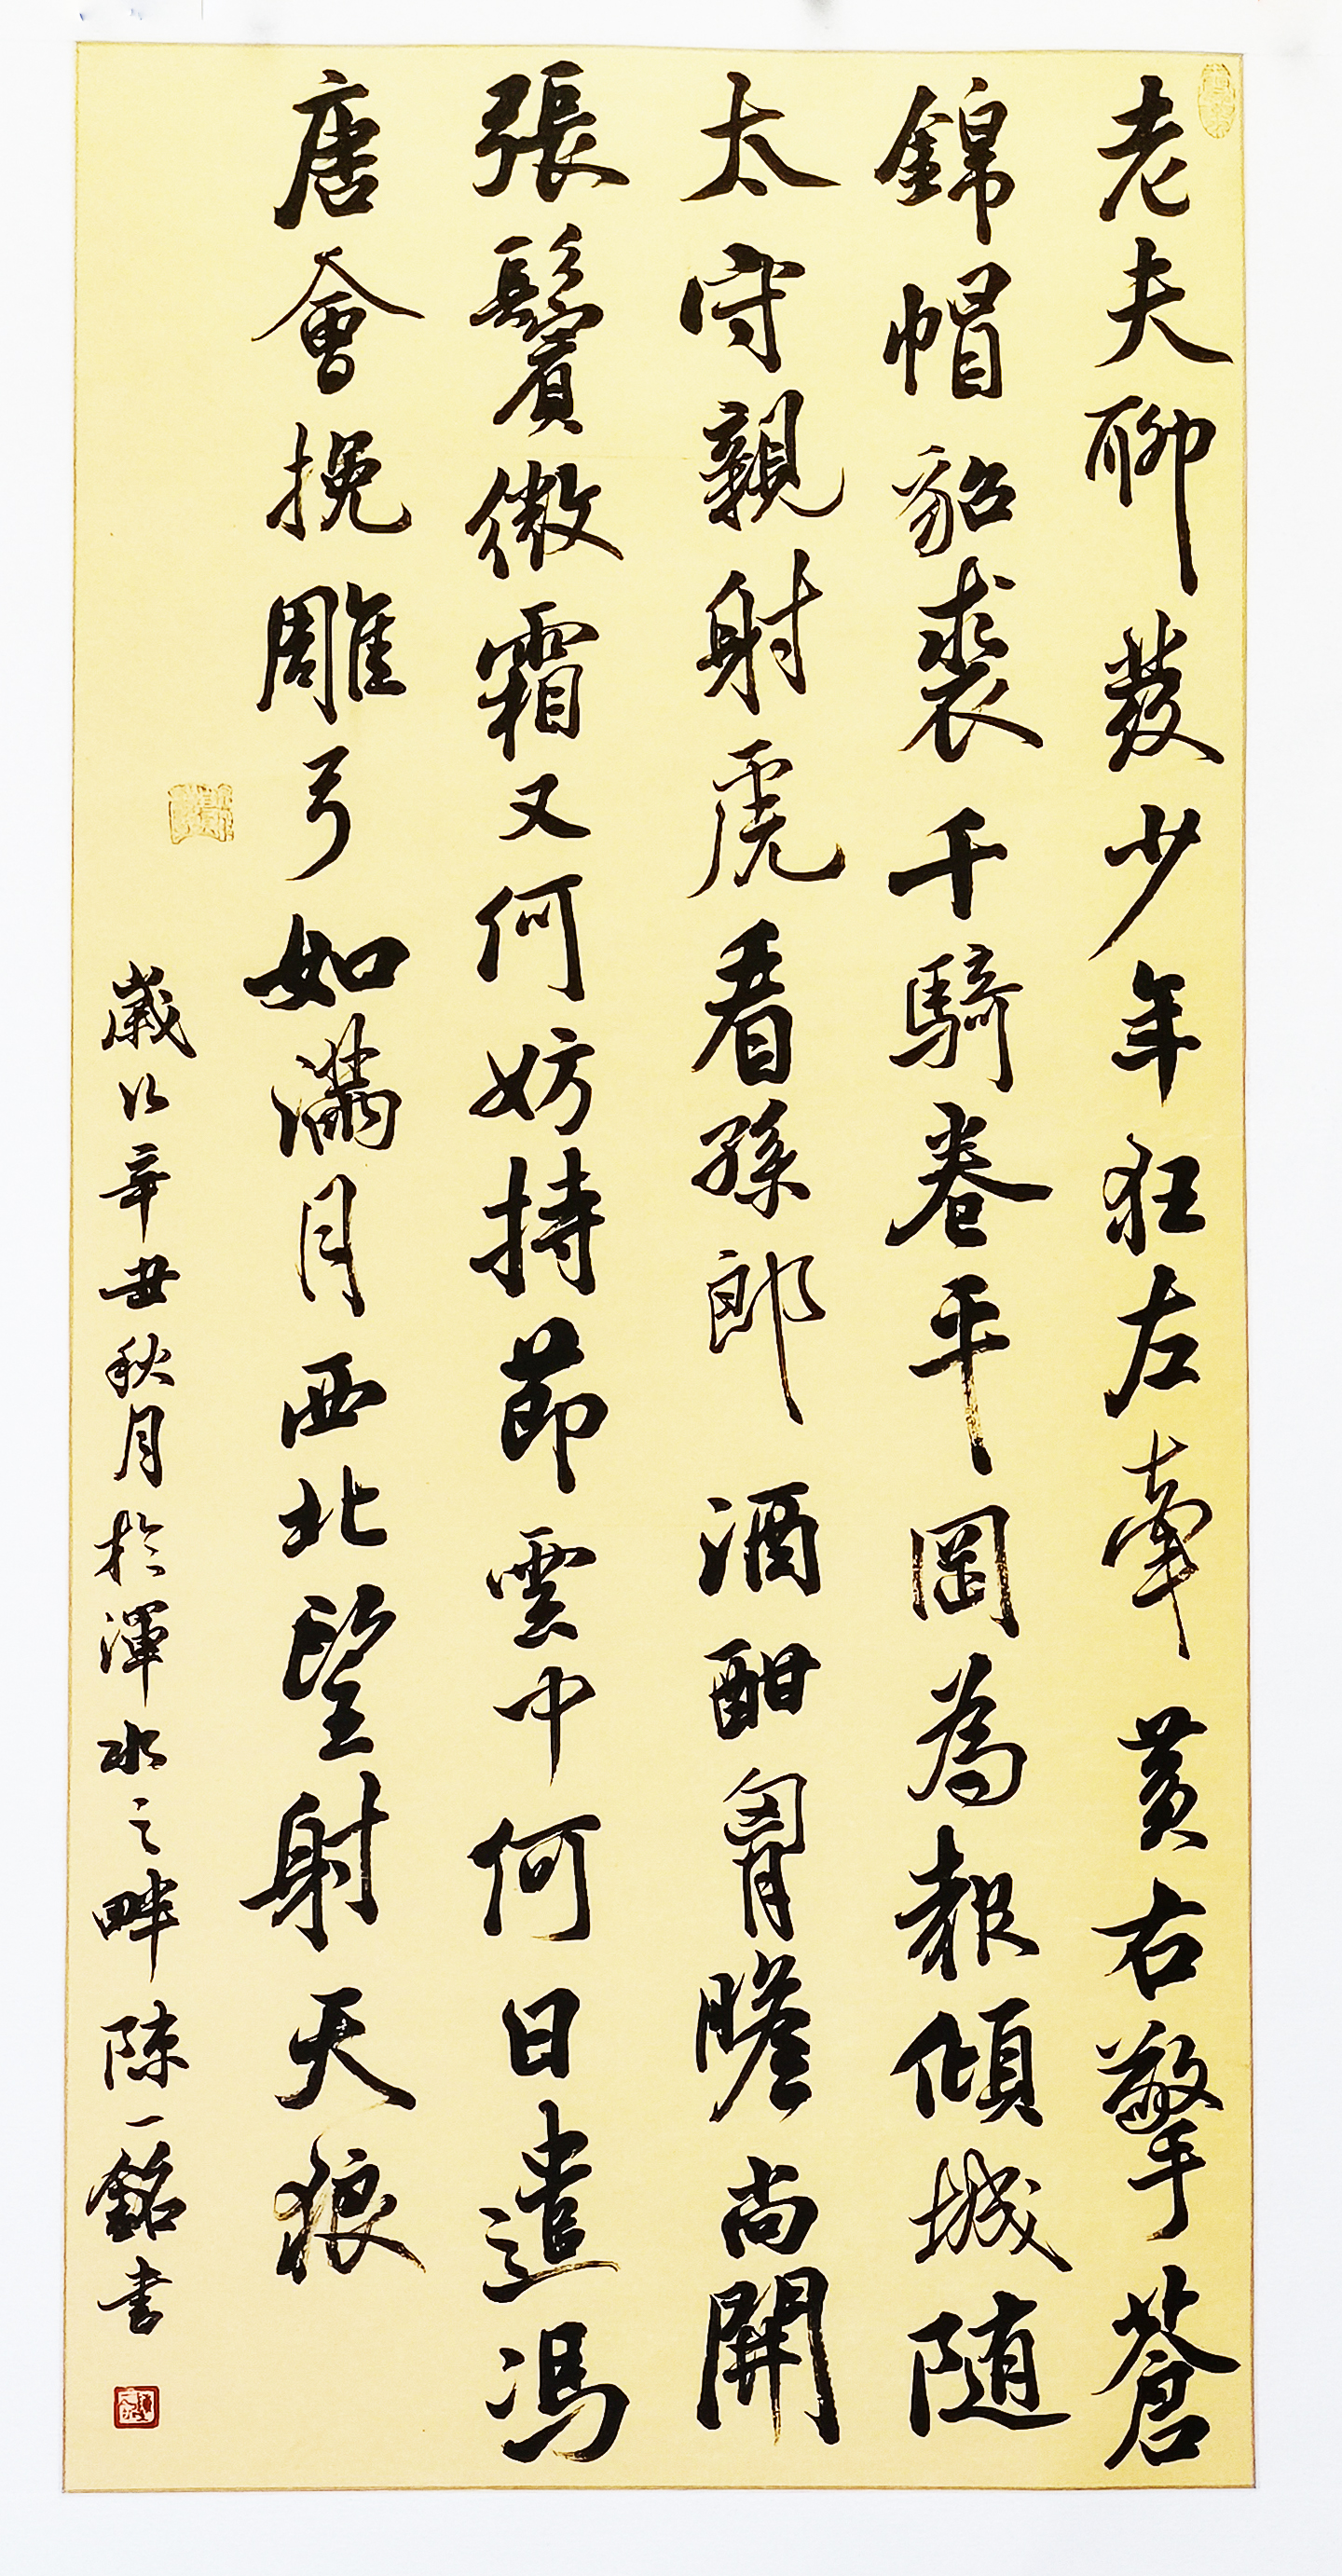 老夫聊發少年狂左牽黃右擎蒼
錦帽貂裘千騎卷平岡為報傾城隨
太守親射虎看孫郎酒酣胷膽尚開
張鬢微霜又何妨持節雲中何日遣馮
唐會挽雕弓如滿月西北望射天狼
歲次辛丑秋月於渾水之畔陳一銘书